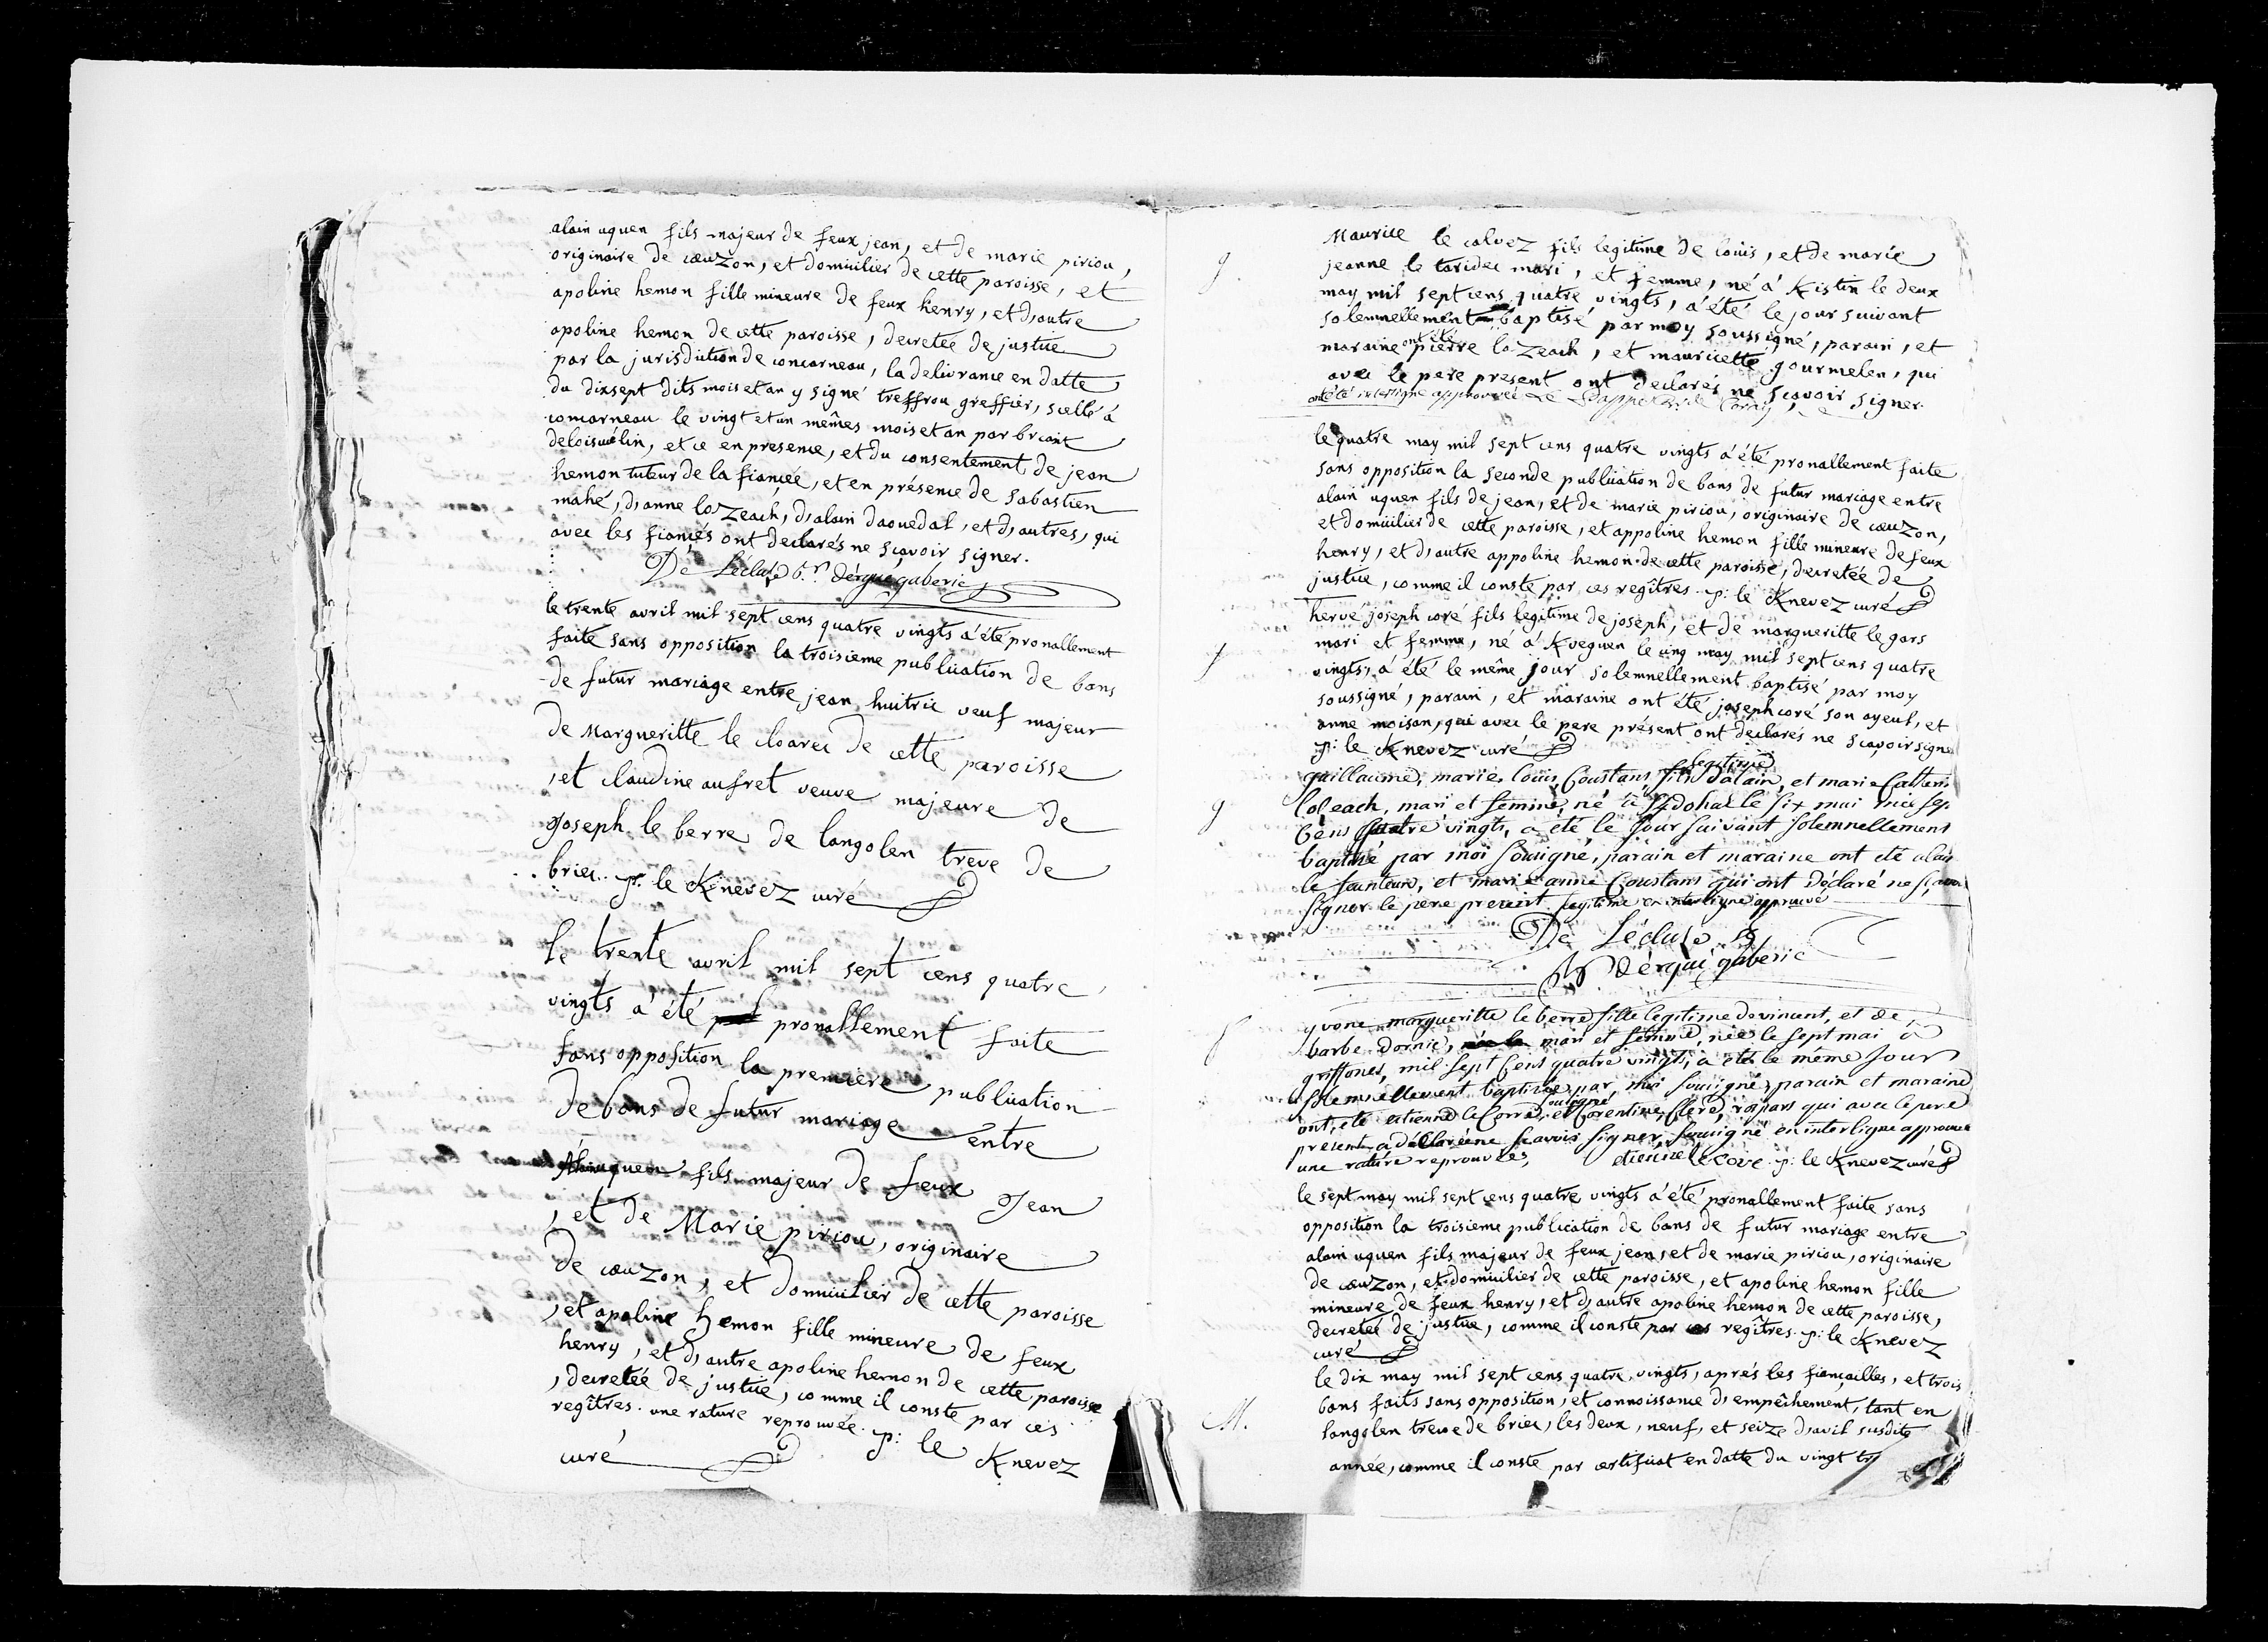 alain uquen fils majeur de feux jean, et de marie piriou,
originaire de cauzon, et domicilier de cette paroisse, et
apoline hemon fille mineure de feux henry, et d'autre
apoline hemon de cette paroisse, decretée de justice
par la jurisdiction de concarneau, la delivrance en datte
du dixsept dits mois et an y signé treffrou greffier, scellé à
concarneau le vingt et un mêmes mois et an par briant
, et ce en presence, et du consentement de jean
hemon tuteur de la fiancée, et en présence de sabastien
mahé, d'anne lozeach, d'alain daouedal, et d'autres, qui
avec les fiancés ont declarés ne sçavoir signer.
De Lécluse Rr dérgué gaberic
le trente avril mil sept cens quatre vingts a été pronallement
faite sans opposition la troisieme publication de bans
de futur mariage entre jean huitric veuf majeur
de Margueritte le cloarec de cette paroisse
, et claudine aufret veuve majeure de
joseph le berre de langolen treve de
briec. p: le Knevez curé
le trente avril mil sept cens quatre
vingts a été pronallement faite
sans opposition la premiere publication
de bans de futur mariage entre
Alain uquen fils majeur de feux Jean
, et de Marie piriou, originaire
de cauzon, et domicilier de cette paroisse
, et apoline hemon fille mineure de feux
henry, et d'autre apoline hemon de cette paroisse
, decretée de justice, comme il conste par ces
regîtres. une rature reprouvée. p: le Knevez
curé
Maurice le calvez fils legitime de loüis, et de marie
g.
jeanne le taridec mari, et femme, né à Kistin le deux
may mil sept cens quatre vingts, a été le jour suivant
solemnellement baptisé par moy soussigné, parain, et
maraine ont été pierre lozeach, et mauricette gourmelen, qui
avec le pere present ont declarés ne sçavoir signer.
ont été interligne approuvée
le quatre may mil sept cens quatre vingts a été pronallement faite
sans opposition la seconde publication de bans de futur mariage entre
alain uquen fils de jean, et de marie piriou, originaire de cauzon,
et domicilier de cette paroisse, et appoline hemon fille mineure de feux
henry, et d'autre appoline hemon de cette paroisse, decretée de
justice, comme il conste par ces regîtres. p: le Knevez curé
hervé joseph coré fils legitime de joseph, et de margueritte le gars
mari et femme, né à Kveguen le cinq may mil sept cens quatre
vingts, a été le même jour solemnellement baptisé par moy
soussigné, parain, et maraine ont été joseph coré son ayeul, et
anne moisan, qui avec le pere présent ont declarés ne sçavoir signer
p: le Knevez curé
guillaume, marie, louis Coustans fils legitime d'alain, et marie Catherine
g
loZeach, mari et femme, né à le six mai mil sept
cens quatre vingts, a été le jour suivant solemnellement
baptisé par moi sousigné, parain et maraine ont été alain
le feunteun, et marie anne Coustans qui ont déclaré ne sçavoir
signer le pere present. legitime en interligne approuvé
De Lécluse
Rr dérgué gaberic
yvone margueritte le berre fille legitime de vincent, et de
barbe dornic, mari et femme, née le sept mai à
griffones, mil sept cens quatre vingts, a été le même jour
solemnellement baptisée par moi sousigné, parain et maraine
ont été etienne le Corre, sousigné et Corentine, rospars qui avec le pere
présent a déclaré ne sçavoir signer, sousigné en interligne approuvé
une rature reprouvée, etienne le core. p: le Knevez curé
le sept may mil sept cens quatre vingts a été pronallement faite sans
opposition la troisieme publication de bans de futur mariage entre
alain uquen fils majeur de feux jean, et de marie piriou, originaire
de cauzon, et domicilier de cette paroisse, et apoline hemon fille
mineure de feux henry, et d'autre apoline hemon de cette paroisse,
decretée de justice, comme il conste par ces regîtres. p: le Knevez
curé
le dix may mil sept cens quatre vingts, aprés les fiançailles, et trois
bans faits sans opposition, et connoissance d'empêchement, tant en
M.
langolen treve de briec, les deux, neuf, et seize d'avril susdite
année, comme il conste par certificat en datte du vingt